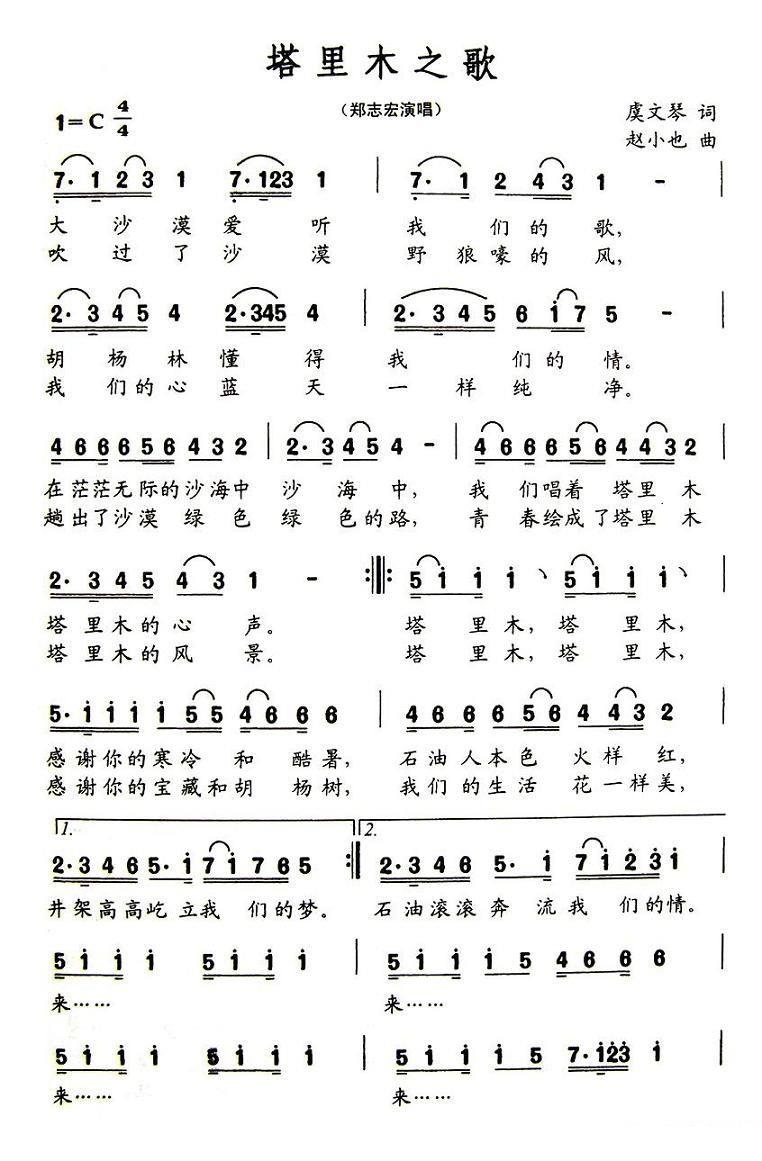 塔里木之歌
1=C 4/4 （郑志宏演唱） 虞文琴 词
赵小也 曲
7· 1 2 3 1 7·123 1 | 7· 1 2 4 3 1 - |
大沙漠爱听 我们的歌,
吹过了沙漠 野狼嚎的风,
2· 3 4 5 4 2·345 4 | 2· 3 4 5 6 i 7 5 - |
胡杨林懂得 我们的情。
我们的心蓝天一样纯净。
4 6 6 6 5 6 4 3 2 | 2· 3 4 5 4 - | 4 6 6 6 5 6 4 4 3 2
在茫茫无际的沙海中 沙海中, 我们唱着塔里木
趟出了沙漠绿色绿色的路, 青春绘成了塔里木
2· 3 4 5 4 3 1 - :‖: 5 i i i 、 5 i i i 、 |
塔里木的心声。 塔里木, 塔里木,
塔里木的风景。 塔里木, 塔里木,
5· i i i i i 5 5 4 6 6 6 | 4 6 6 6 5 6 4 4 3 2 |
感谢你的寒冷和酷暑, 石油人本色火样红,
感谢你的宝藏和胡杨树, 我们的生活花一样美,
1. 2.
2· 3 4 6 5· i 7 i 7 6 5 :‖ 2· 3 4 6 5· i 7 i 2 3 i |
井架高高屹立我们的梦。 石油滚滚奔流我们的情。
5 i i i 5 i i i | 5 i i i 5 4 6 6 6 |
来…… 来……
5 i i i 5 i i i | 5 i i i 5 7·i23 i |
来…… 来……